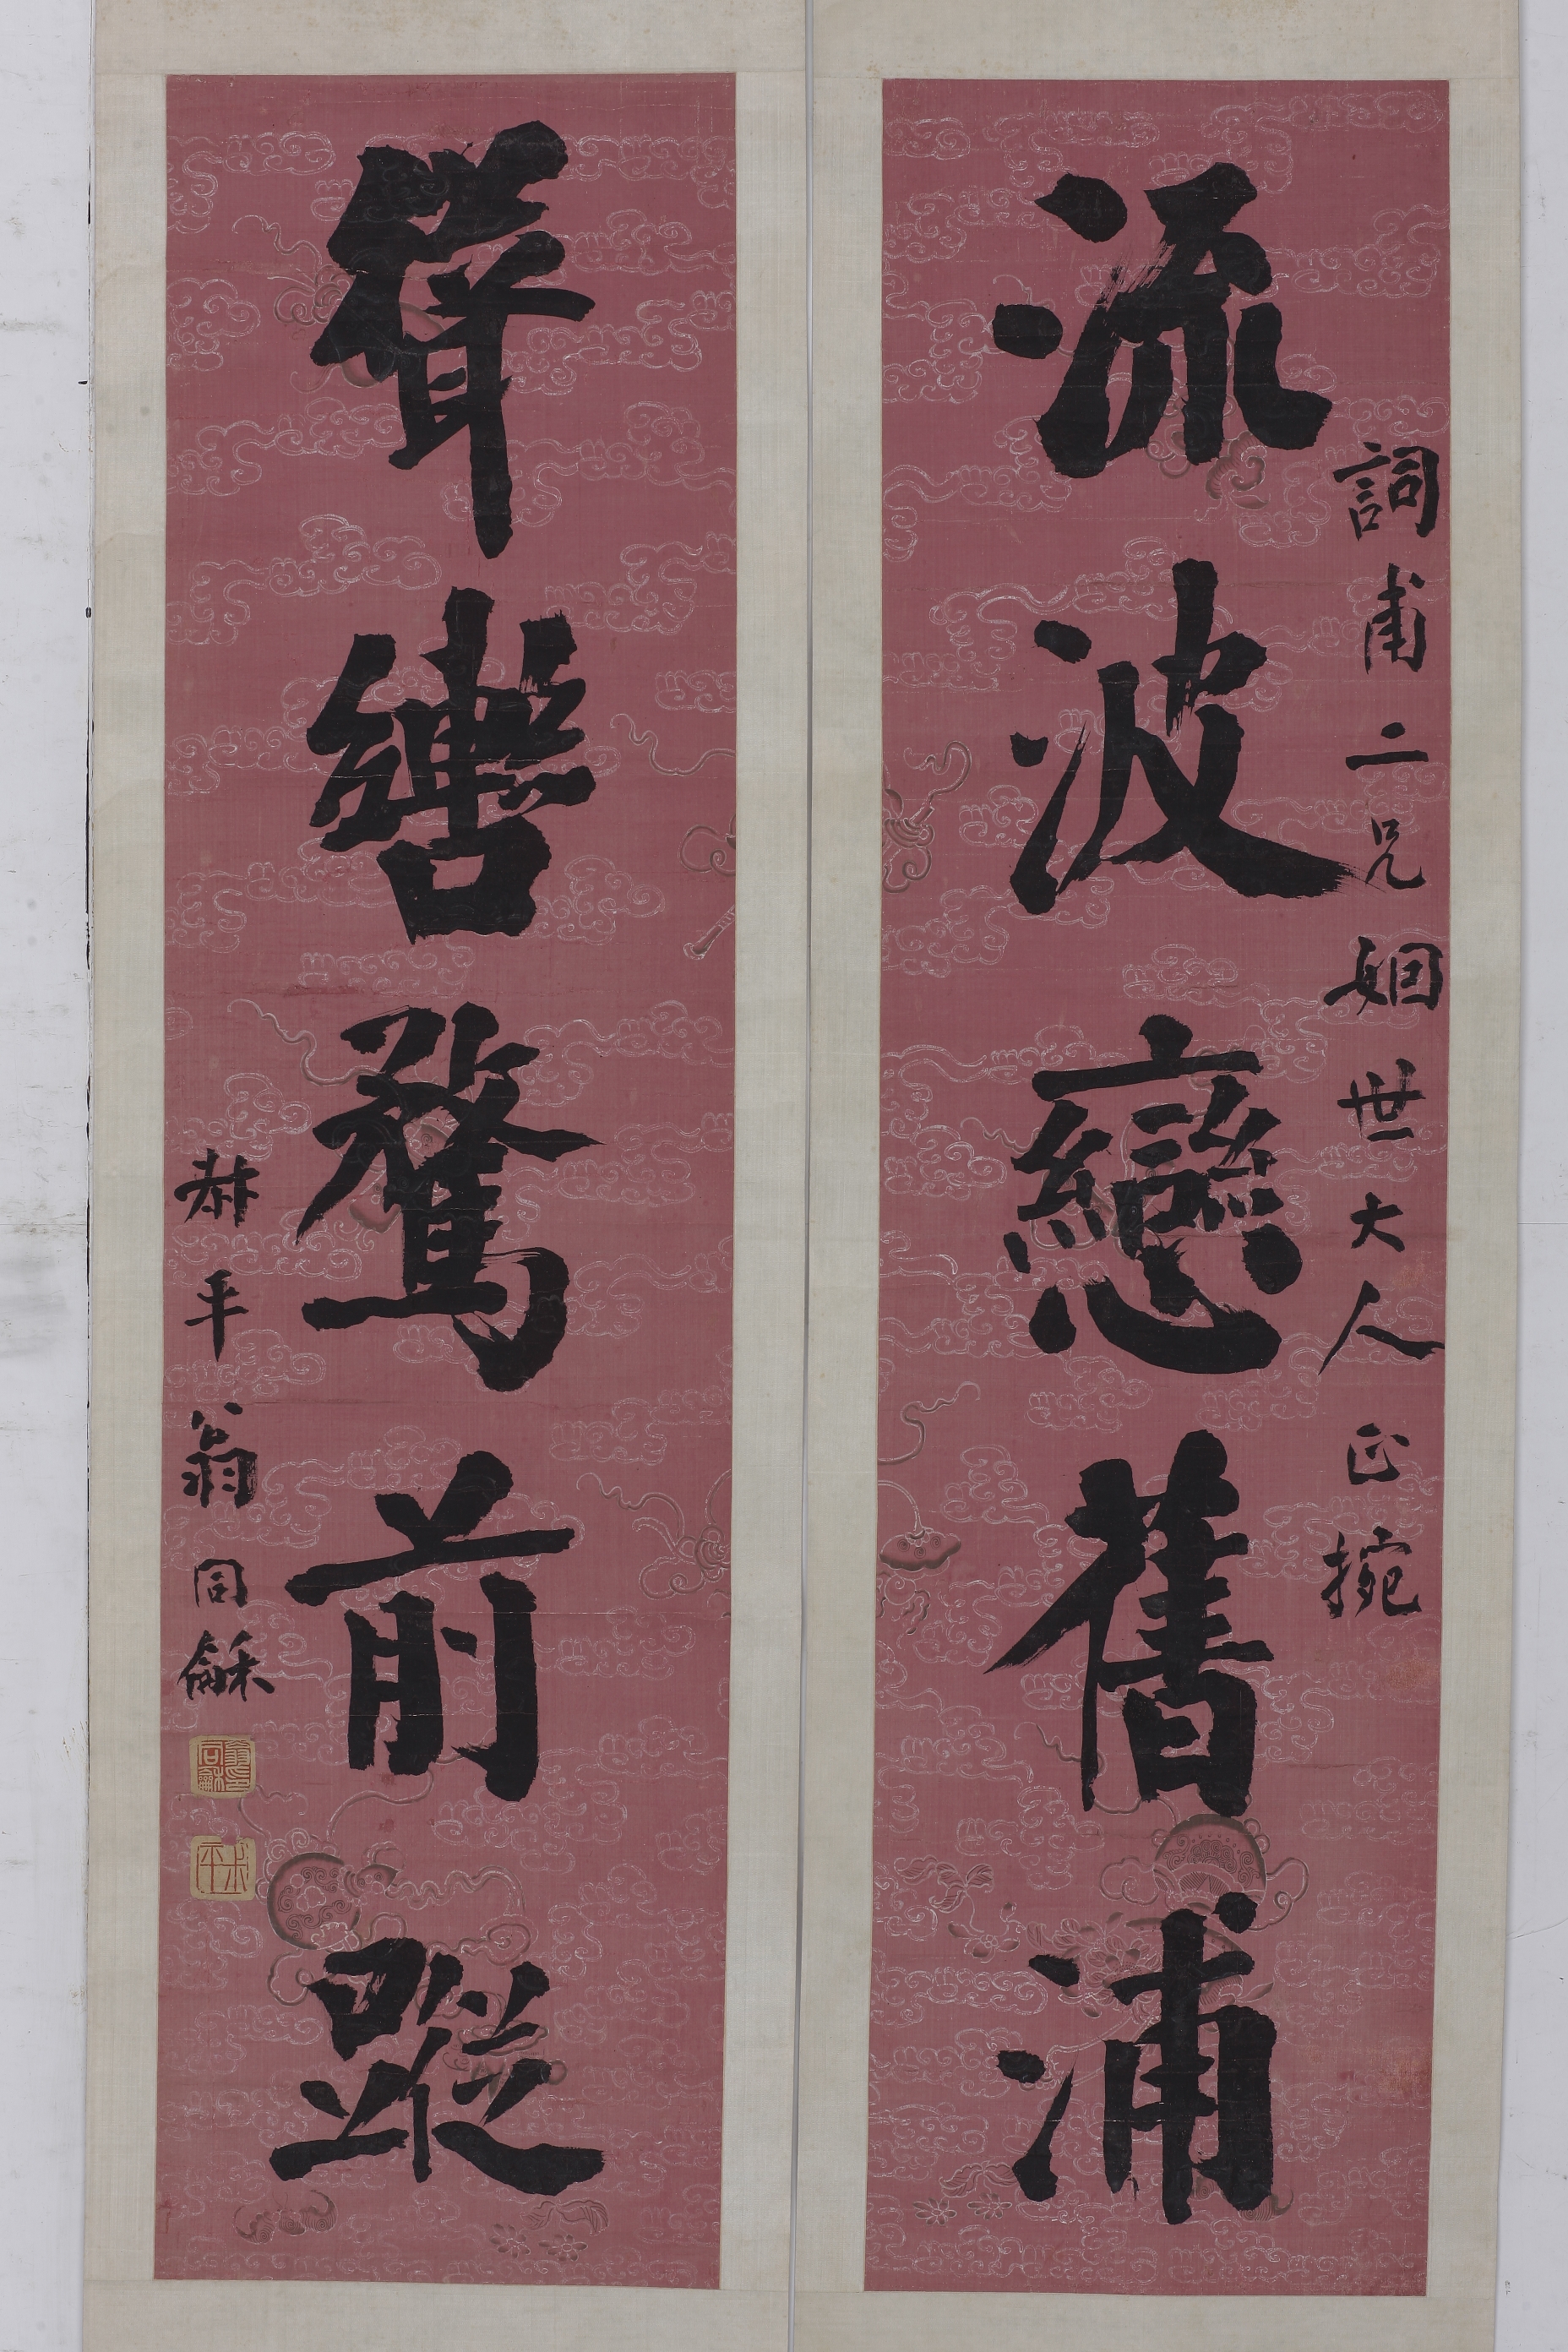 詞甫二兄姻世大人正捥
流波戀舊浦
聳轡騖前蹤
叔平翁同龢
翁印同龢
叔平